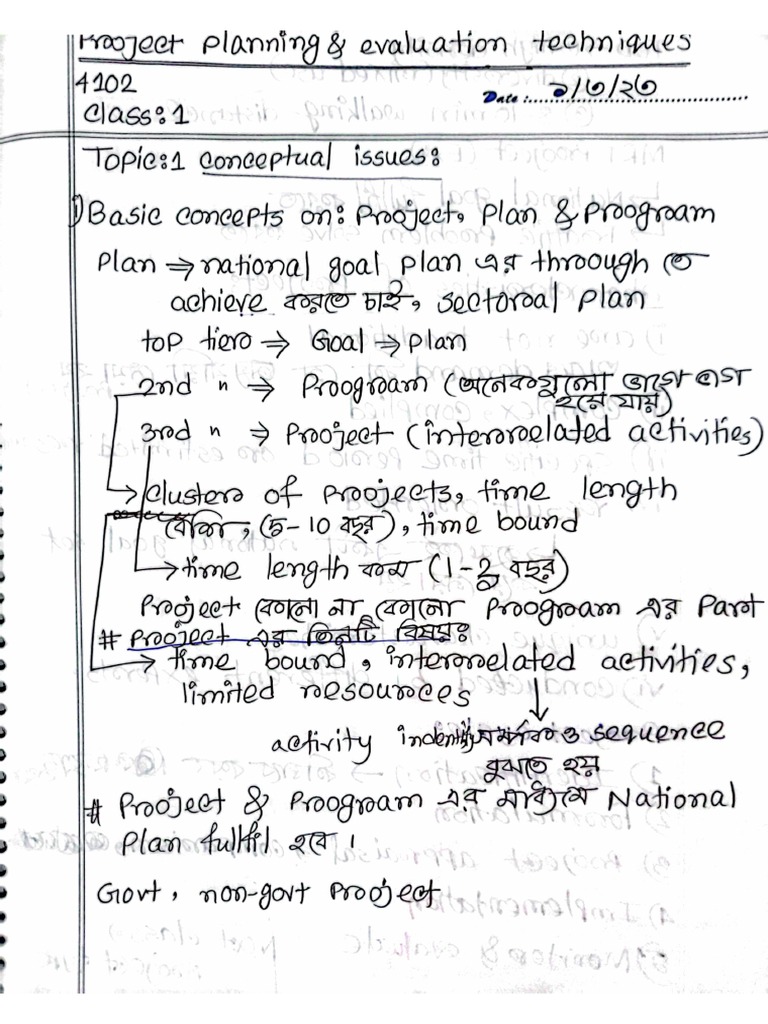 Project planning & evaluation techniques
4102
Date:.... ৯/৩/২৩
Class: 1
Topic: 1 conceptual issues:
1) Basic concepts on: Project, Plan & Program
Plan ⇒ national goal plan এর through তে
achieve করতে চাই, sectoral plan
top tier ⇒ Goal ⇒ plan
2nd " ⇒ Program (অনেকগুলো ভাগে ভাগ
হয়ে যায়)
3rd " ⇒ Project (interrelated activities)
→ cluster of projects, time length
বেশি, (৫-10 বছর), time bound
→ time length কম (1-2 বছর)
Project কোনো না কোনো Program এর Part
# Project এর তিনটি বিষয়:
→ time bound, interrelated activities,
limited resources
activity indentify ও sequence
বুঝতে হয়
# Project & Program এর মাধ্যমে National
Plan fulfil হবে।
Govt, non-govt project